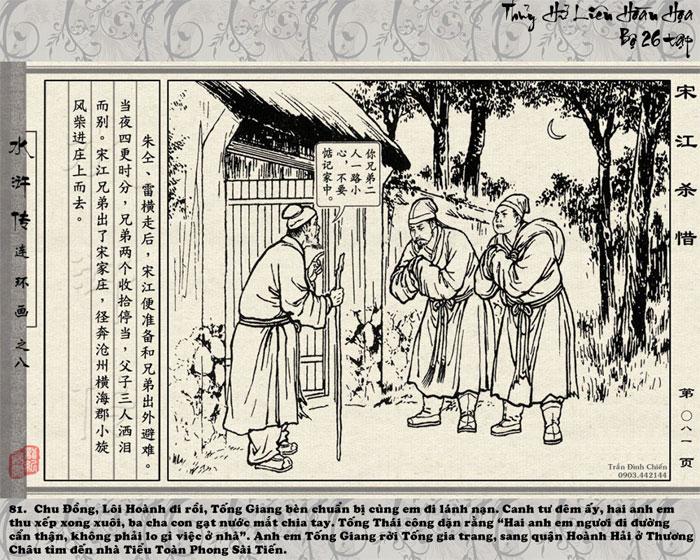 Thủy Hử Liên Hoàn Họa
Bộ 26 tập
宋江杀惜
第〇八一页
你兄弟二
人一路小
心，不要
惦记家中。
朱仝、雷横走后，宋江便准备和兄弟出外避难。
当夜四更时分，兄弟两个收拾停当，父子三人洒泪
而别。宋江兄弟出了宋家庄，径奔沧州横海郡小旋
风柴进庄上而去。
水浒传连环画之八
Trần Đình Chiến
0903.442144
81. Chu Đồng, Lôi Hoành đi rồi, Tống Giang bèn chuẩn bị cùng em đi lánh nạn. Canh tư đêm ấy, hai anh em
thu xếp xong xuôi, ba cha con gạt nước mắt chia tay. Tống Thái công dặn rằng “Hai anh em ngươi đi đường
cẩn thận, không phải lo gì việc ở nhà”. Anh em Tống Giang rời Tống gia trang, sang quận Hoành Hải ở Thương
Châu tìm đến nhà Tiểu Toàn Phong Sài Tiến.